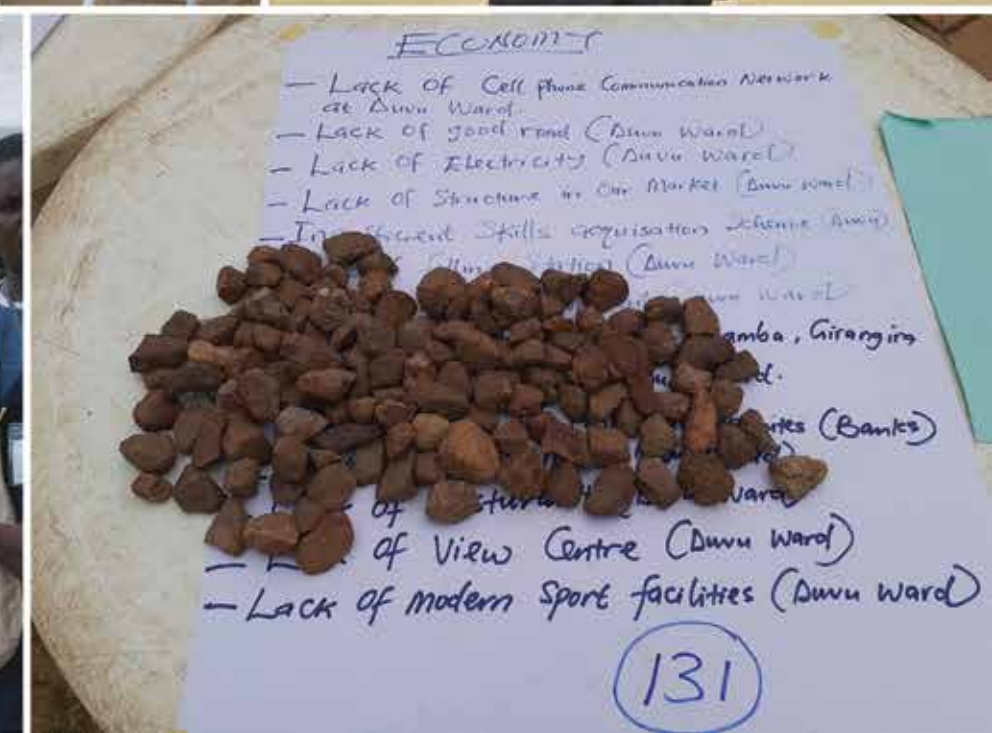 ECONOMY
— Lack of Cell phone Communication Network
at Duvu Ward.
— Lack of good road (Duvu Ward)
— Lack of Electricity (Duvu Ward)
— Lack of Structure in Our Market (Duvu Ward)
Skills acquisation Scheme (Duvu
(Duvu Ward)
Duvu Ward
amba, Girangira
d.
ites (Banks)
of ward
— of View Centre (Duvu Ward)
— Lack of modern Sport facilities (Duvu Ward)
131